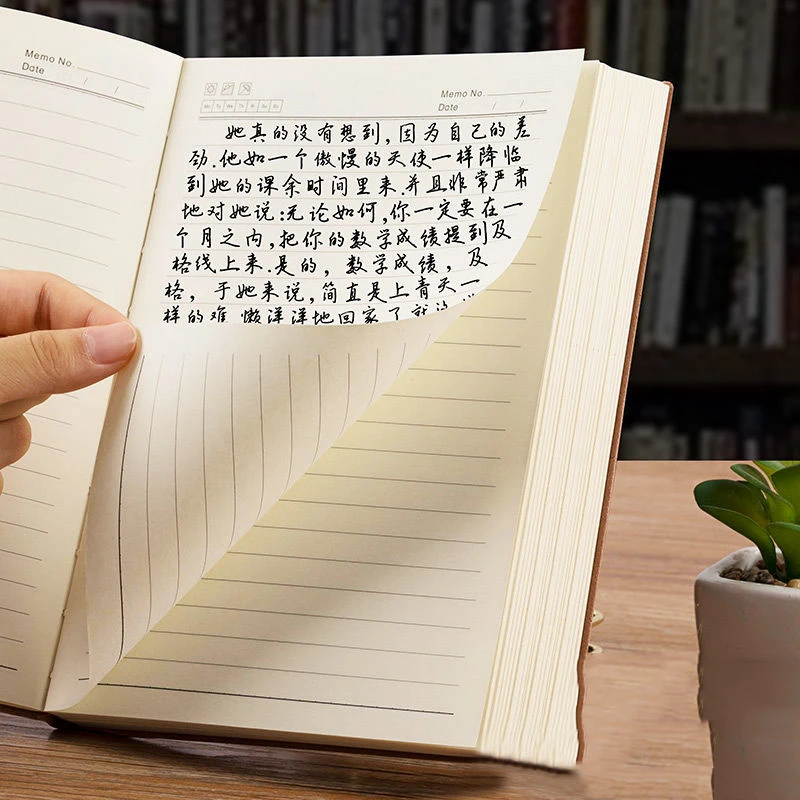 Memo No.
Date / /
Memo No.
Mo Tu We Th Fr Sa Su
Date / /
她真的没有想到,因为自己的差
劲.他如一个傲慢的天使一样降临
到她的课余时间里来.并且非常严肃
地对她说:无论如何,你一定要在一
个月之内,把你的数学成绩提到及
格线上来.是的,数学成绩,及
格,于她来说,简直是上青天一
样的难 懒洋洋地回家了